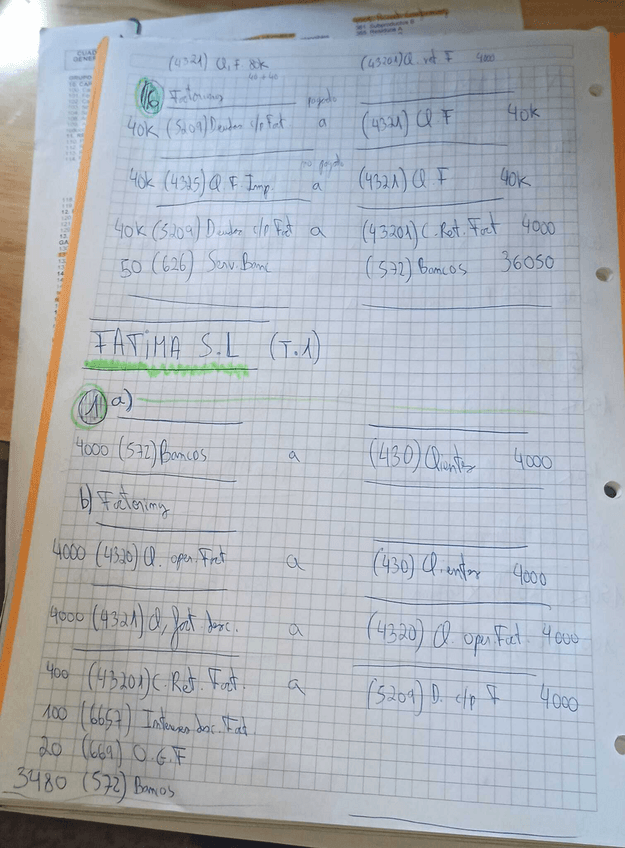 (4321) Cl. F 80k (43201) Cl. ret F 4000
40 + 40
16 Factoring pagado
40k (5209) Deudas c/p Fact a (4321) Cl. F 40k
no pagado
40k (4325) Cl. F. Imp. a (4321) Cl. F 40k
40k (5209) Deudas c/p Fact a (43201) C. Ret. Fact 4000
50 (626) Serv. Banc (572) Bancos 36050
FATIMA S.L (T.1)
1 a)
4000 (572) Bancos a (430) Clientes 4000
b) Factoring
4000 (4320) Cl. oper. Fact a (430) Clientes 4000
4000 (4321) Cl, fact desc. a (4320) Cl. oper. Fact. 4000
400 (43201) C. Ret. Fact. a (5209) D. c/p F 4000
100 (6657) Intereses desc. Fact.
20 (669) O.G.F
3480 (572) Bancos